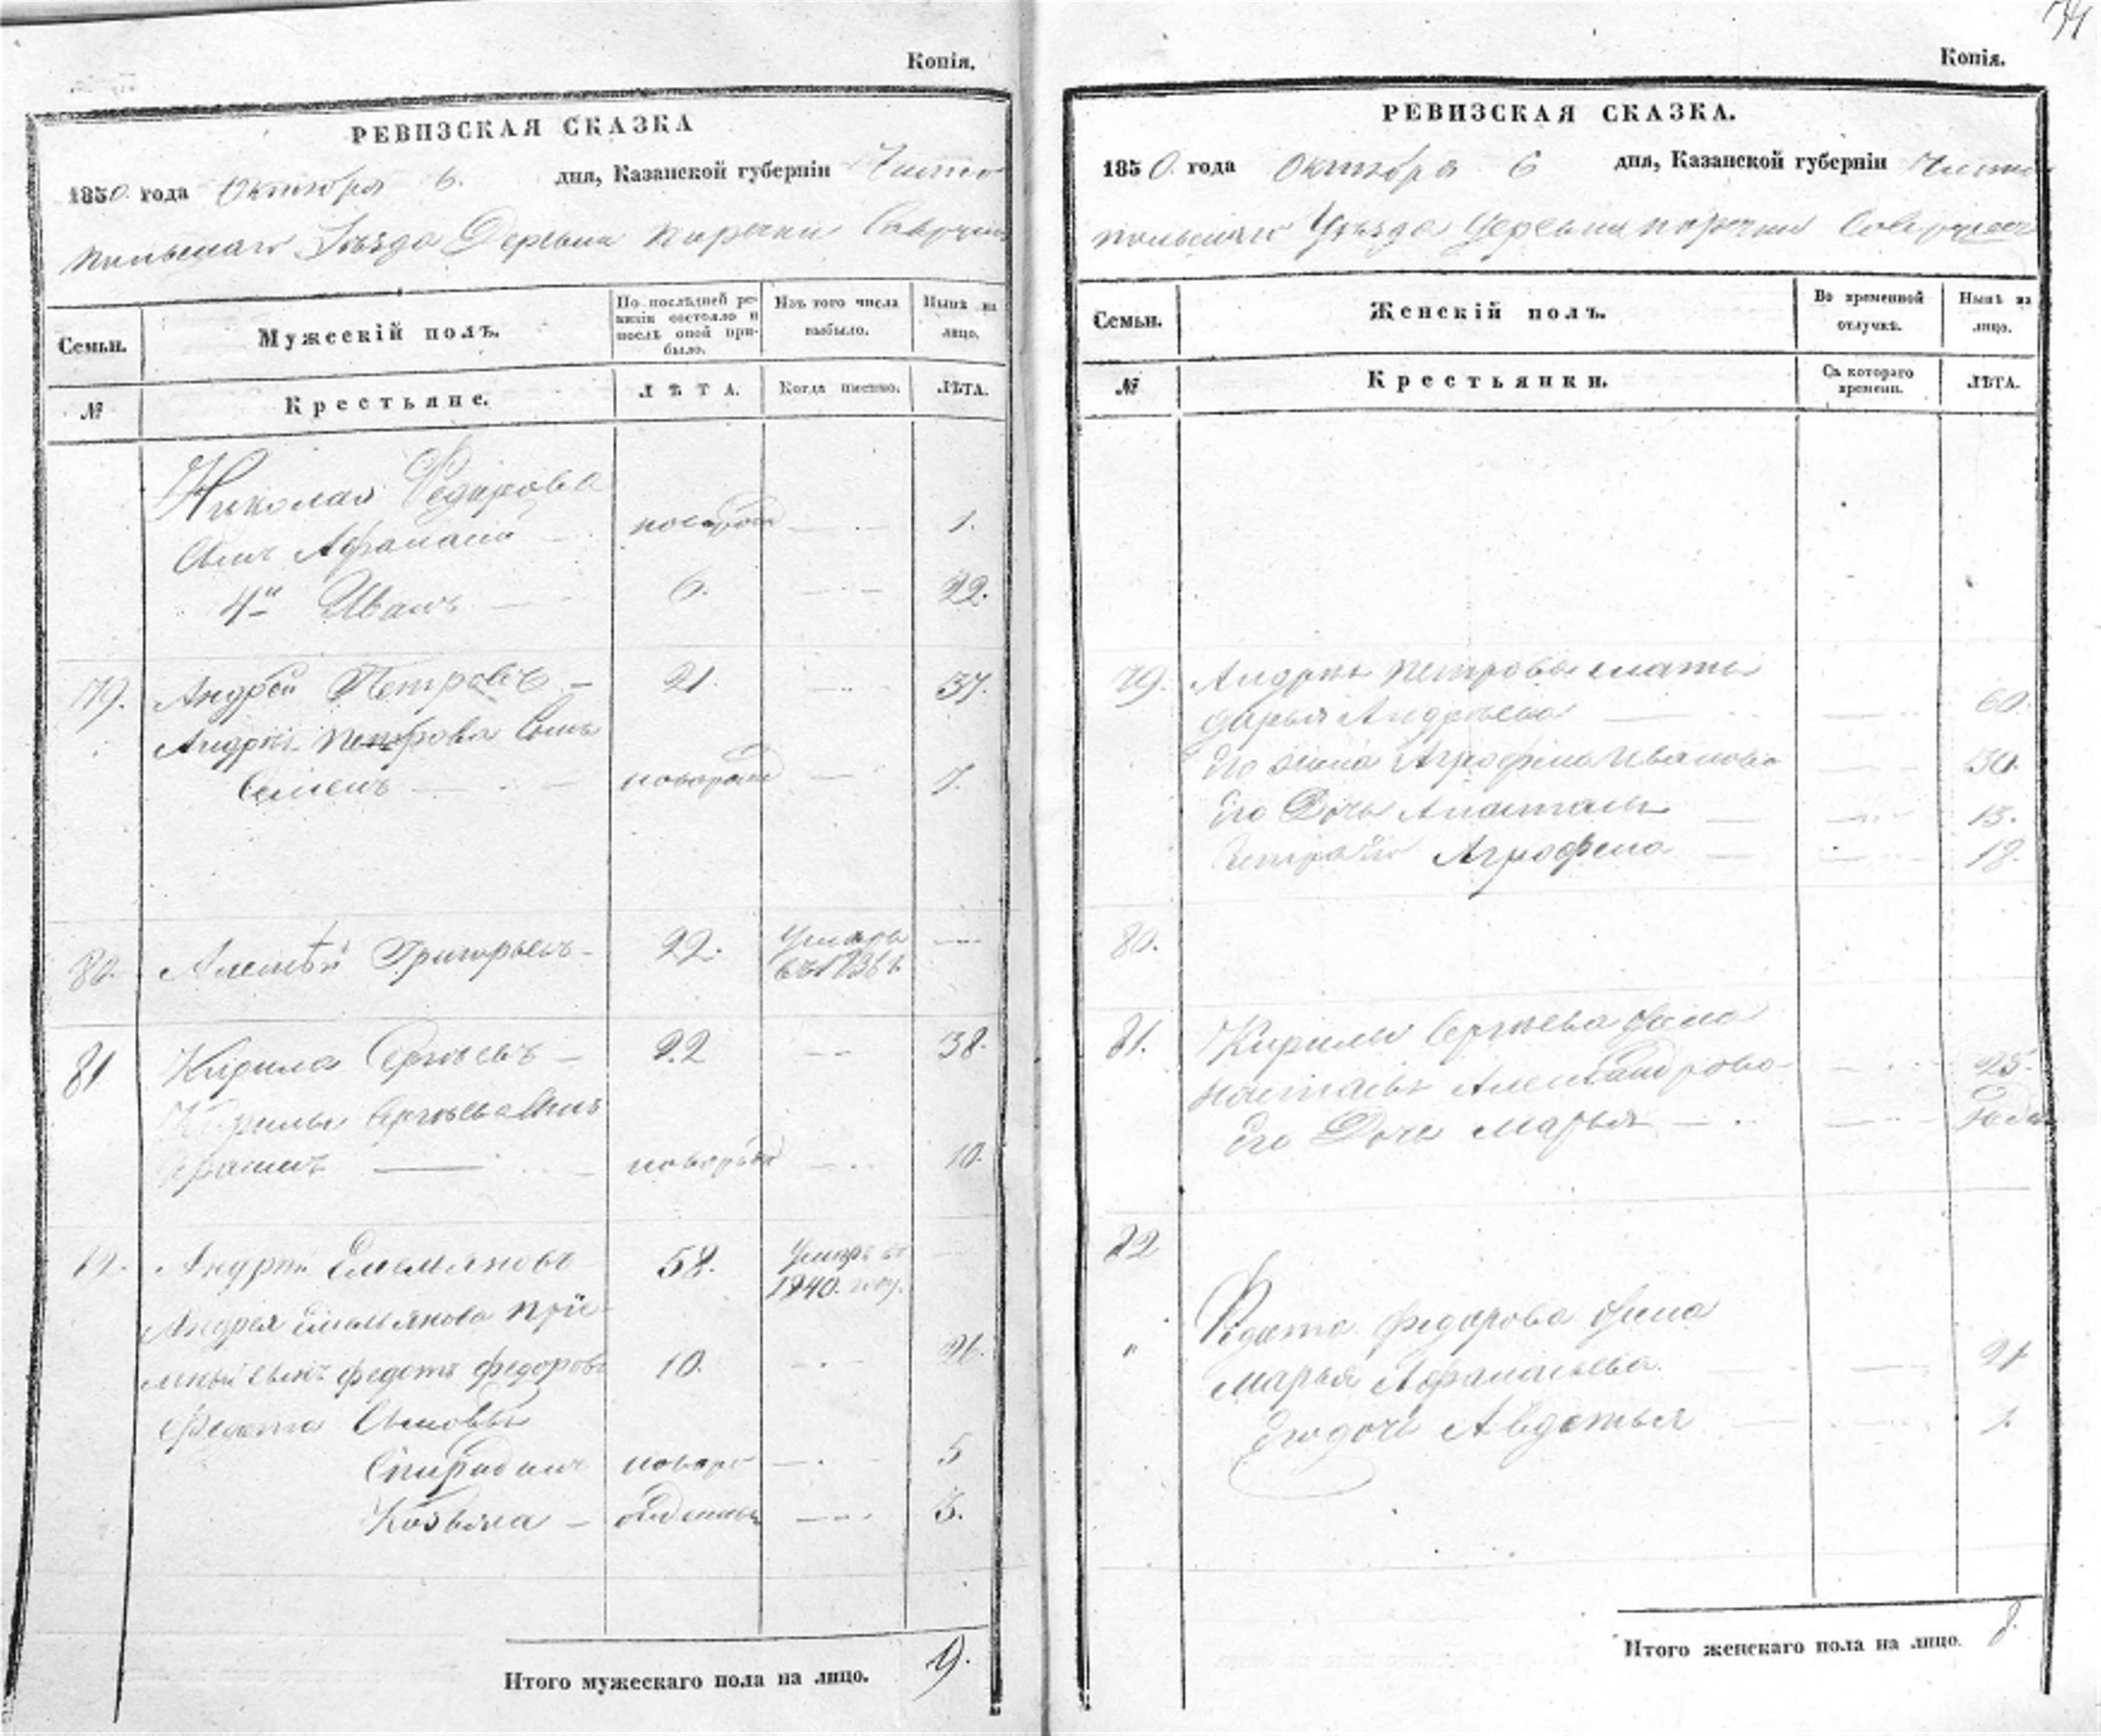 Копія.
РЕВИЗСКАЯ СКАЗКА
1850. года Октября 6. дня, Казанской губерніи Чисто
польскаго Уѣзда Деревни
Семьи.
Мужескій полъ.
По послѣдней ре-
визіи состояло и
послѣ оной при-
было.
Изъ того числа
выбыло.
Нынѣ на
лицо.
№
Крестьяне.
ЛѢТА.
Когда именно.
ЛѢТА.
Николая Федорова
Сынъ Афанасий новорож 1.
4й Иванъ 6. 22.
79. Андрей Петровъ 21. 37.
Андрея Петрова Сынъ
Семенъ новорож 7.
80. Алексѣй Григорьевъ 22. Умеръ
въ 1836 г.
81 Кирила Сергѣевъ 22 38.
Кирилы Сергѣева Сынъ
новорож 10.
82. Андрей Емельяновъ 58. Умеръ въ
1840. году.
Андрея Емельянова Прie-
мный сынъ Федотъ Федоровъ 10. 26.
Федота Сыновья
Спиридонъ новоро 5
Козьма жденные 3.
Итого мужескаго пола на лицо. 9.
Копія.
РЕВИЗСКАЯ СКАЗКА.
1850. года Октября 6 дня, Казанской губерніи Чисто
польскаго Уѣзда Деревни
Семьи.
Женскій полъ.
Во временной
отлучкѣ.
Нынѣ на
лицо.
№
Крестьянки.
Съ котораго
времени.
ЛѢТА.
79. Андрея Петрова мать
Дарья Андреева 60.
Его жена Агрофена Иванова 30.
Его Дочь Анастасья 13.
Агрофена 18.
80.
81. Кирилы Сергѣева жена
Настасья Александрова 25.
Его Дочь Марья
82
" Федота Федорова жена
Марья Афанасьева
Его дочь Авдотья 1.
Итого женскаго пола на лицо. 8.